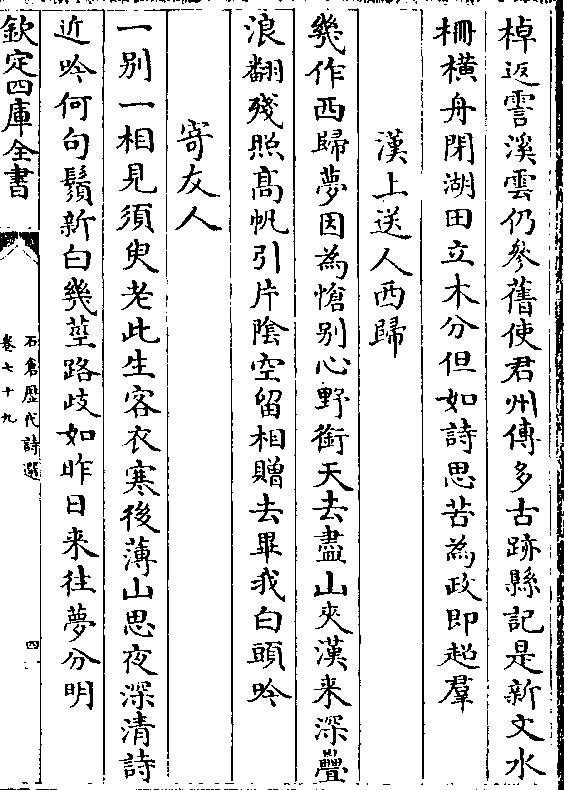 棹返霅溪雲仍參舊使君州傳多古跡縣記是新文水
柵橫舟閉湖田立木分但如詩思苦為政即超羣
漢上送人西歸
幾作西歸夢因為愴别心野銜天去盡山夾漢来深疊
浪翻殘照髙帆引片陰空留相贈去畢我白頭吟
寄友人
一别一相見須臾老此生客衣寒後薄山思夜深清詩
近吟何句鬚新白幾莖路歧如昨日来往夢分明
欽定四庫全書
石倉歷代詩選
卷七十九
四